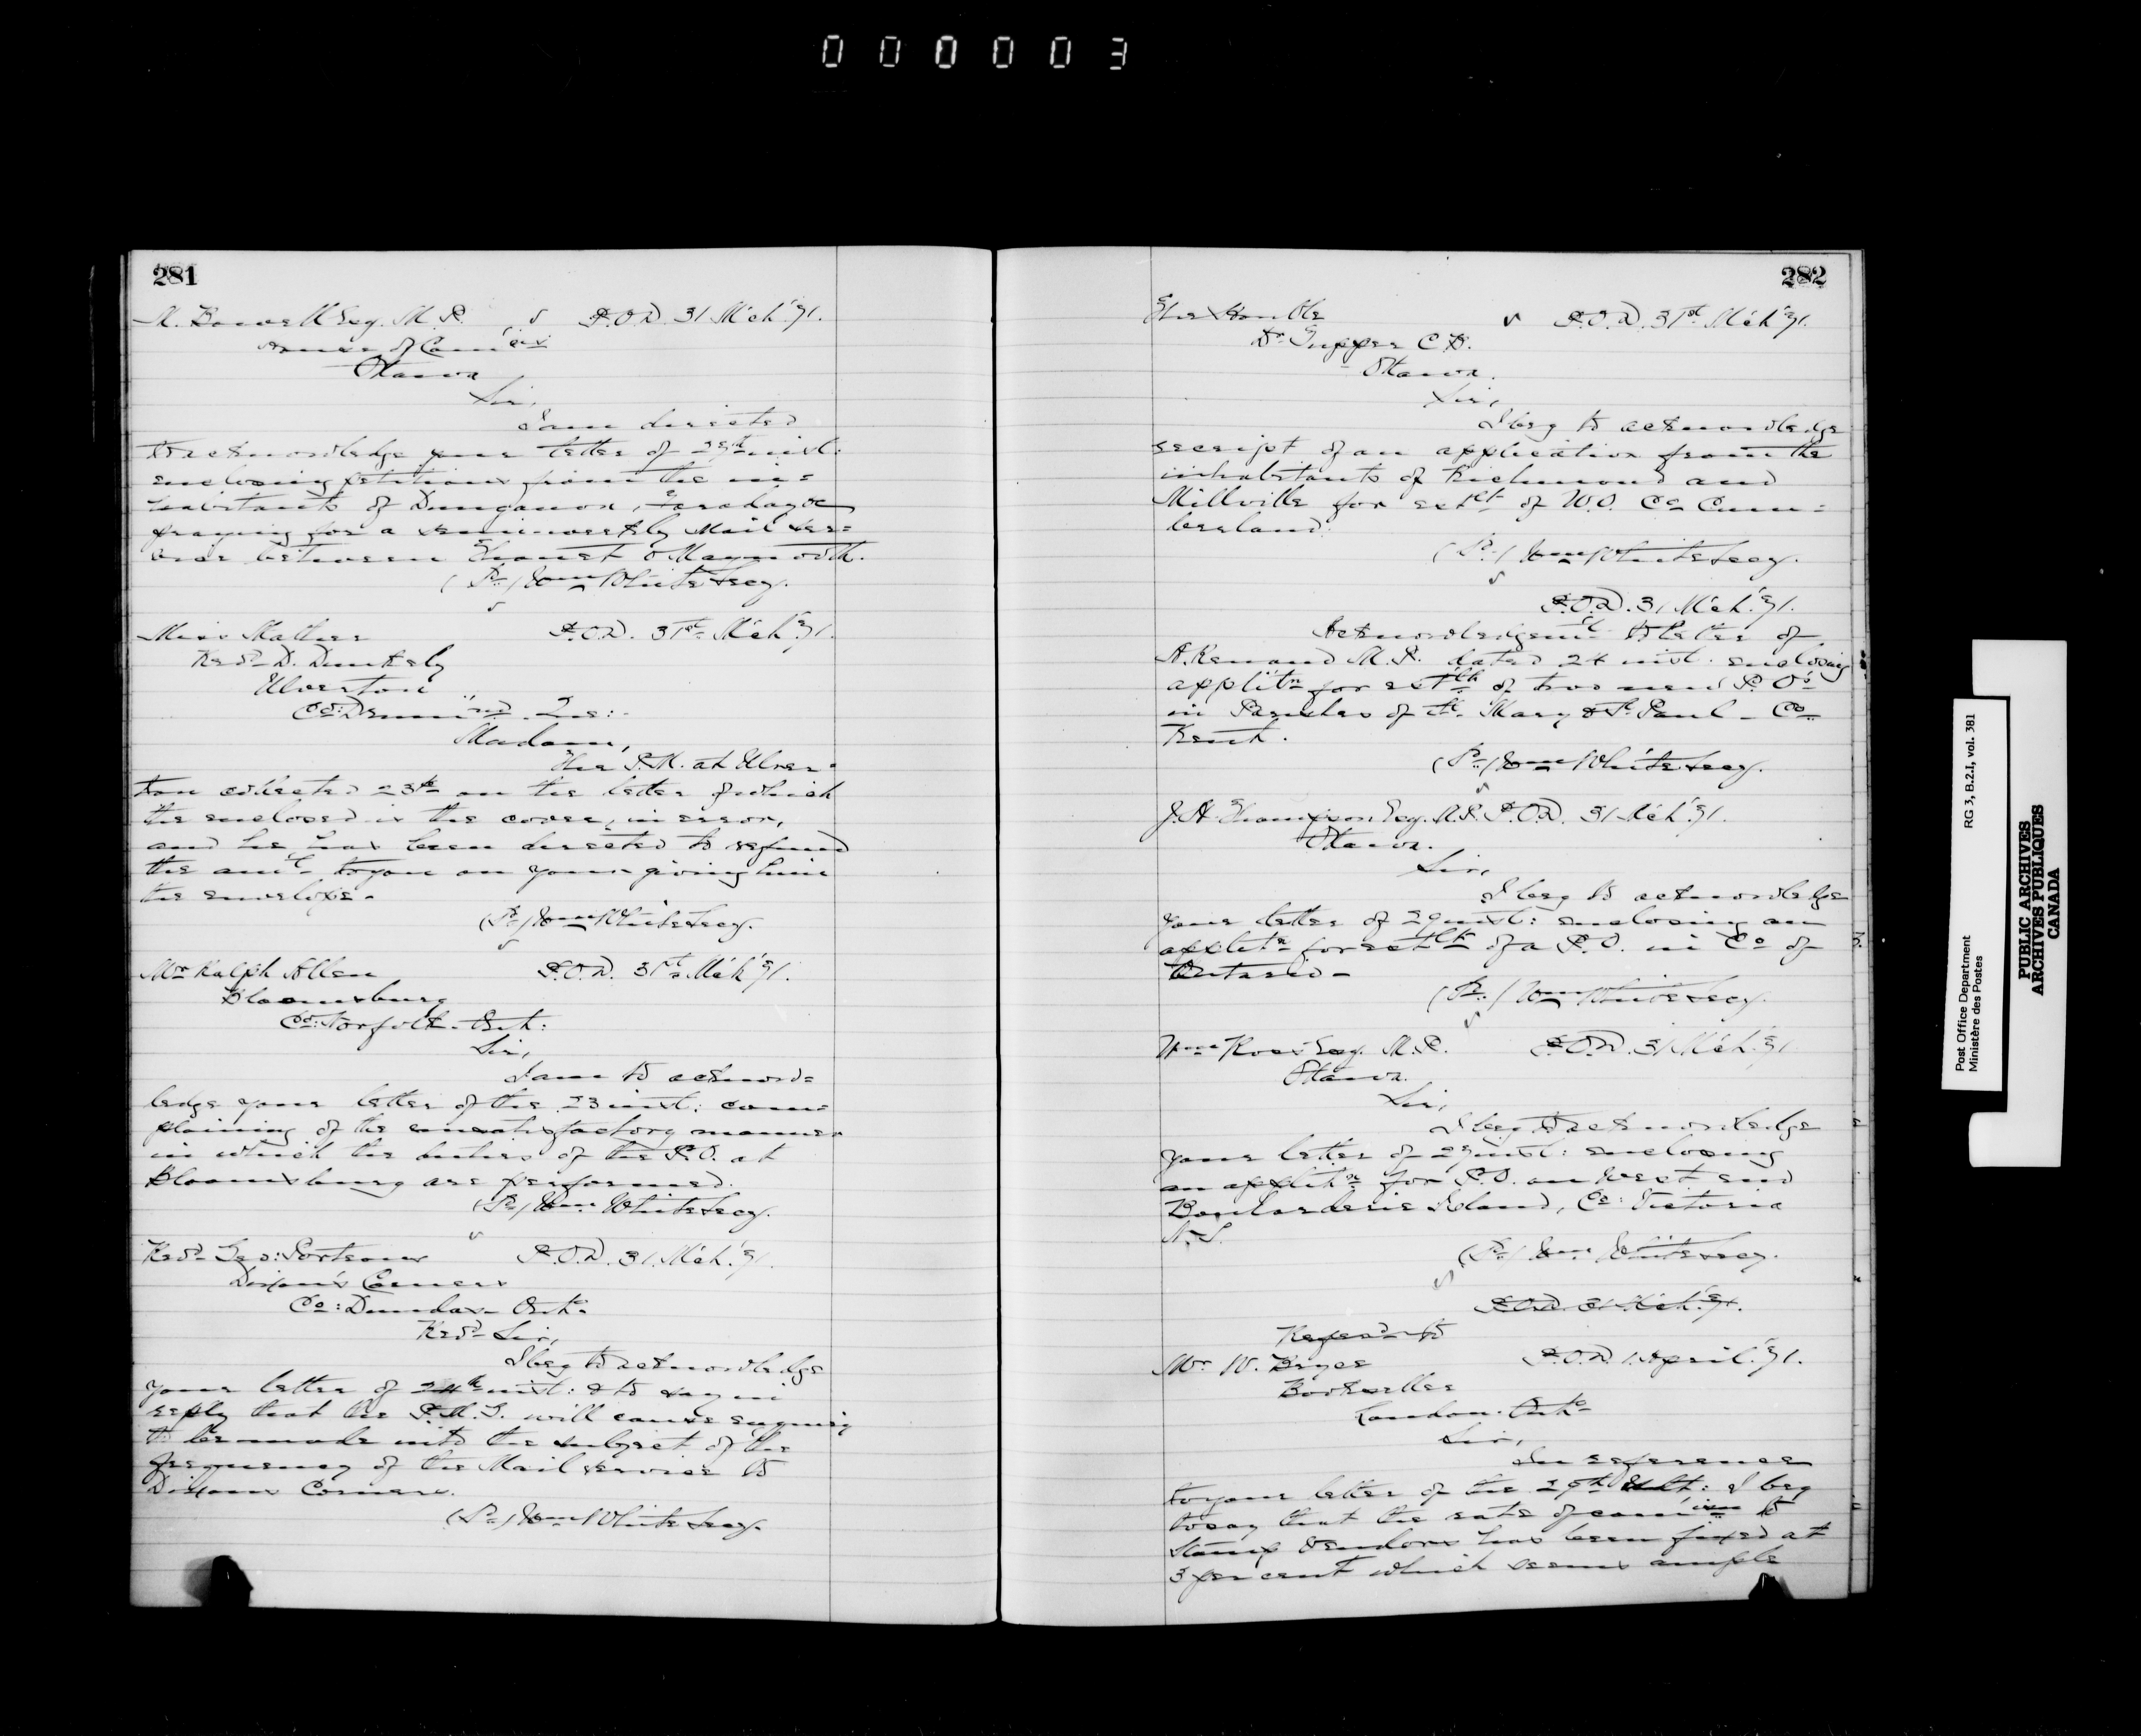 000003
281
M. Bowell Esq. M.P. P.O.D. 31 Mch '71.
House of Com'ons
Ottawa
Sir,
I am directed
to acknowledge your letter of 29th inst:
enclosing petitions from the in=
habitants of Dungannon, Faraday &c
praying for a semi-weekly Mail ser=
vice between Thanet & Maynooth.
(Sd) Wm White Secy.
Miss Mather P.O.D. 31st Mch '71.
Revd D. Dunkerly
Ulverton
Co: Drummond. Que:
Madam,
The P.M. at Ulver=
ton collected 23c on the letter of which
the enclosed is the cover, in error,
and he has been directed to refund
the amt to you on your giving him
the envelope.
(Sd) Wm White Secy.
Mr Ralph Allen P.O.D. 31st Mch '71.
Bloomsburg
Co: Norfolk. Ont:
Sir,
I am to acknow=
ledge your letter of the 23 inst: com=
plaining of the unsatisfactory manner
in which the duties of the P.O. at
Bloomsburg are performed.
(Sd) Wm White Secy.
Revd Geo: P.O.D. 31 Mch '71.
Dixon's Corners
Co: Dundas Onto
Revd Sir,
I beg to acknowledge
your letter of 24th inst: & to say in
reply that the P.M.G. will cause enquiry
to be made into the subject of the
frequency of the Mail service to
Dixons Corners.
(Sd) Wm White Secy.
282
The Honble P.O.D. 31st Mch '71.
Dr Tupper C.B.
Ottawa.
Sir,
I beg to acknowledge
receipt of an application from the
inhabitants of Richmond and
Millville for estt of W.O. Co Cum=
berland.
(Sd) Wm White Secy.
P.O.D. 31 Mch '71.
Acknowledgemt to letter of
A. Renaud M.P. dated 24 inst. enclosing
applitn for estt of two new P.Os
in Parishes of St. Mary & St. Paul - Co
Kent.
(Sd) Wm White Secy.
J. H. Thompson Esq. M.P. P.O.D. 31 Mch '71.
Ottawa.
Sir,
I beg to acknowledge
your letter of 29 inst: enclosing an
applitn for estt of a P.O. in Co of
Ontario -
(Sd) Wm White Secy.
Wm Ross Esq. M.P. P.O.D. 31 Mch '71
Ottawa.
Sir,
I beg to acknowledge
your letter of 29 inst: enclosing
an applitn for P.O. on West end
Boularderie Island, Co: Victoria
N.S.
(Sd) Wm White Secy.
P.O.D. 31 Mch '71.
Mr W. Bryce P.O.D. 1 April '71.
Bookseller
London. Onto
Sir,
In reference
to your letter of the 29th Ult: I beg
to say that the rate of com'ion to
Stamp Vendors has been fixed at
3 per cent which seems ample
Post Office Department
Ministère des Postes
RG 3, B.2.I, vol. 381
PUBLIC ARCHIVES
ARCHIVES PUBLIQUES
CANADA